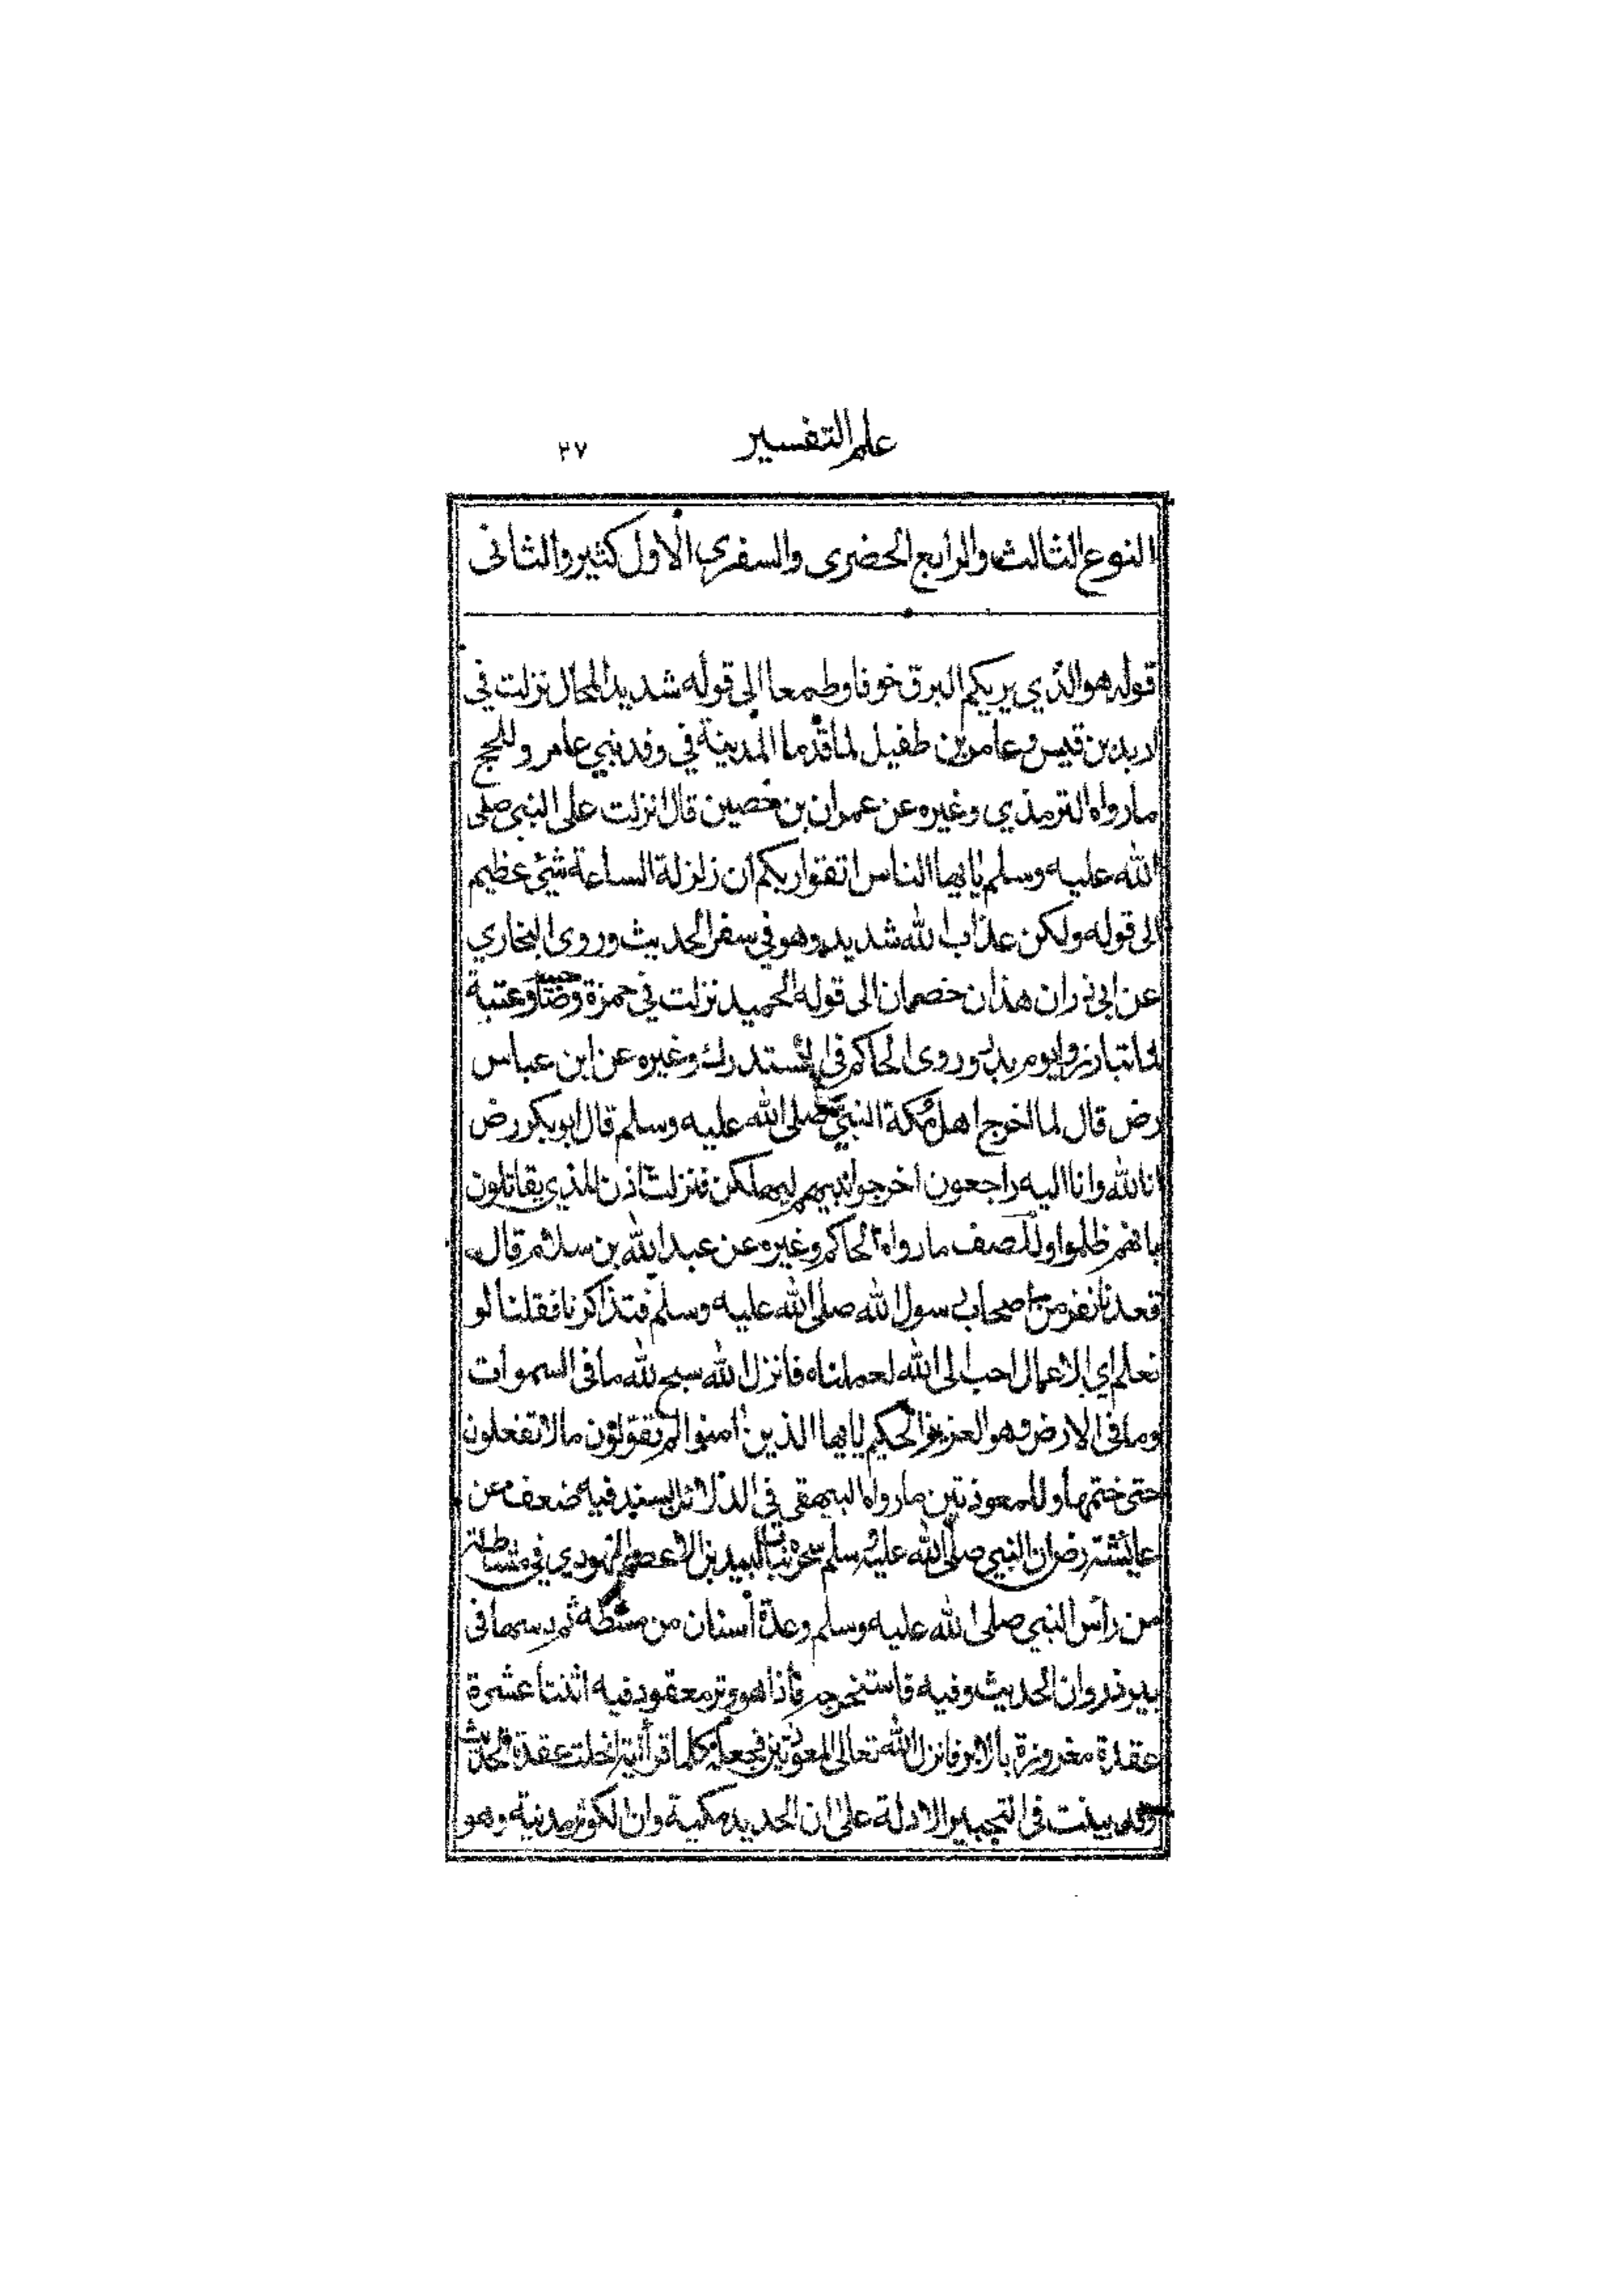 علم التفسير ٣٧
النوع الثالث والرابع الحضرى والسفرى الاول كثير والثانى
قوله هوالذي يريكم البرق خوفا وطمعا الى قوله شديد المحال نزلت في
اربد بن قيس وعامر بن طفيل لما قدما المدينة في وفد بني عامر وللحج
ما رواه الترمذي وغيره عن عمران بن حصين قال انزلت على النبي صلى
الله عليه وسلم يايها الناس اتقوا ربكم ان زلزلة الساعة شئ عظيم
الى قوله ولكن عذاب الله شديد وهو في سفر الحديث وروى البخاري
عن ابي ذر ان هذان خصمان الى قوله الحميد نزلت في حمزة وعتبة
لما تبارزوا يوم بدر وروى الحاكم في المستدرك وغيره عن ابن عباس
رض قال لما اخرج اهل مكة النبي صلى الله عليه وسلم قال ابو بكر رض
انا لله وانا اليه راجعون اخرجوا نبيهم ليهلكن فنزلت اذن للذي يقاتلون
بانهم ظلموا وللصف ما رواه الحاكم وغيره عن عبد الله بن سلام قال
قعدنا نفر من اصحاب رسول الله صلى الله عليه وسلم فتذاكرنا فقلنا لو
نعلم اي الاعمال احب الى الله لعملناه فانزل الله سبح لله ما فى السموات
وما فى الارض وهو العزيز الحكيم يايها الذين امنوا لم تقولون مالا تفعلون
حتى ختمها وللمعوذتين ما رواه البيهقى في الدلائل بسند فيه ضعف عن
عايشة رض ان النبي صلى الله عليه وسلم سحره لبيد بن الاعصم اليهودي في مشاطة
من رأس النبي صلى الله عليه وسلم وعدة اسنان من مشطه ثم دسها فى
بير ذروان الحديث وفيه فاستخرجه فاذا هو وتر معقود فيه اثنتا عشرة
عقدة مغروزة بالابر فانزل الله تعالى المعوذتين فجعل كلما قرأ اية انحلت عقدة الحديث
وقد بينت في التحبير الادلة على ان الحديد مكية وان الكوثر مدنية وهو